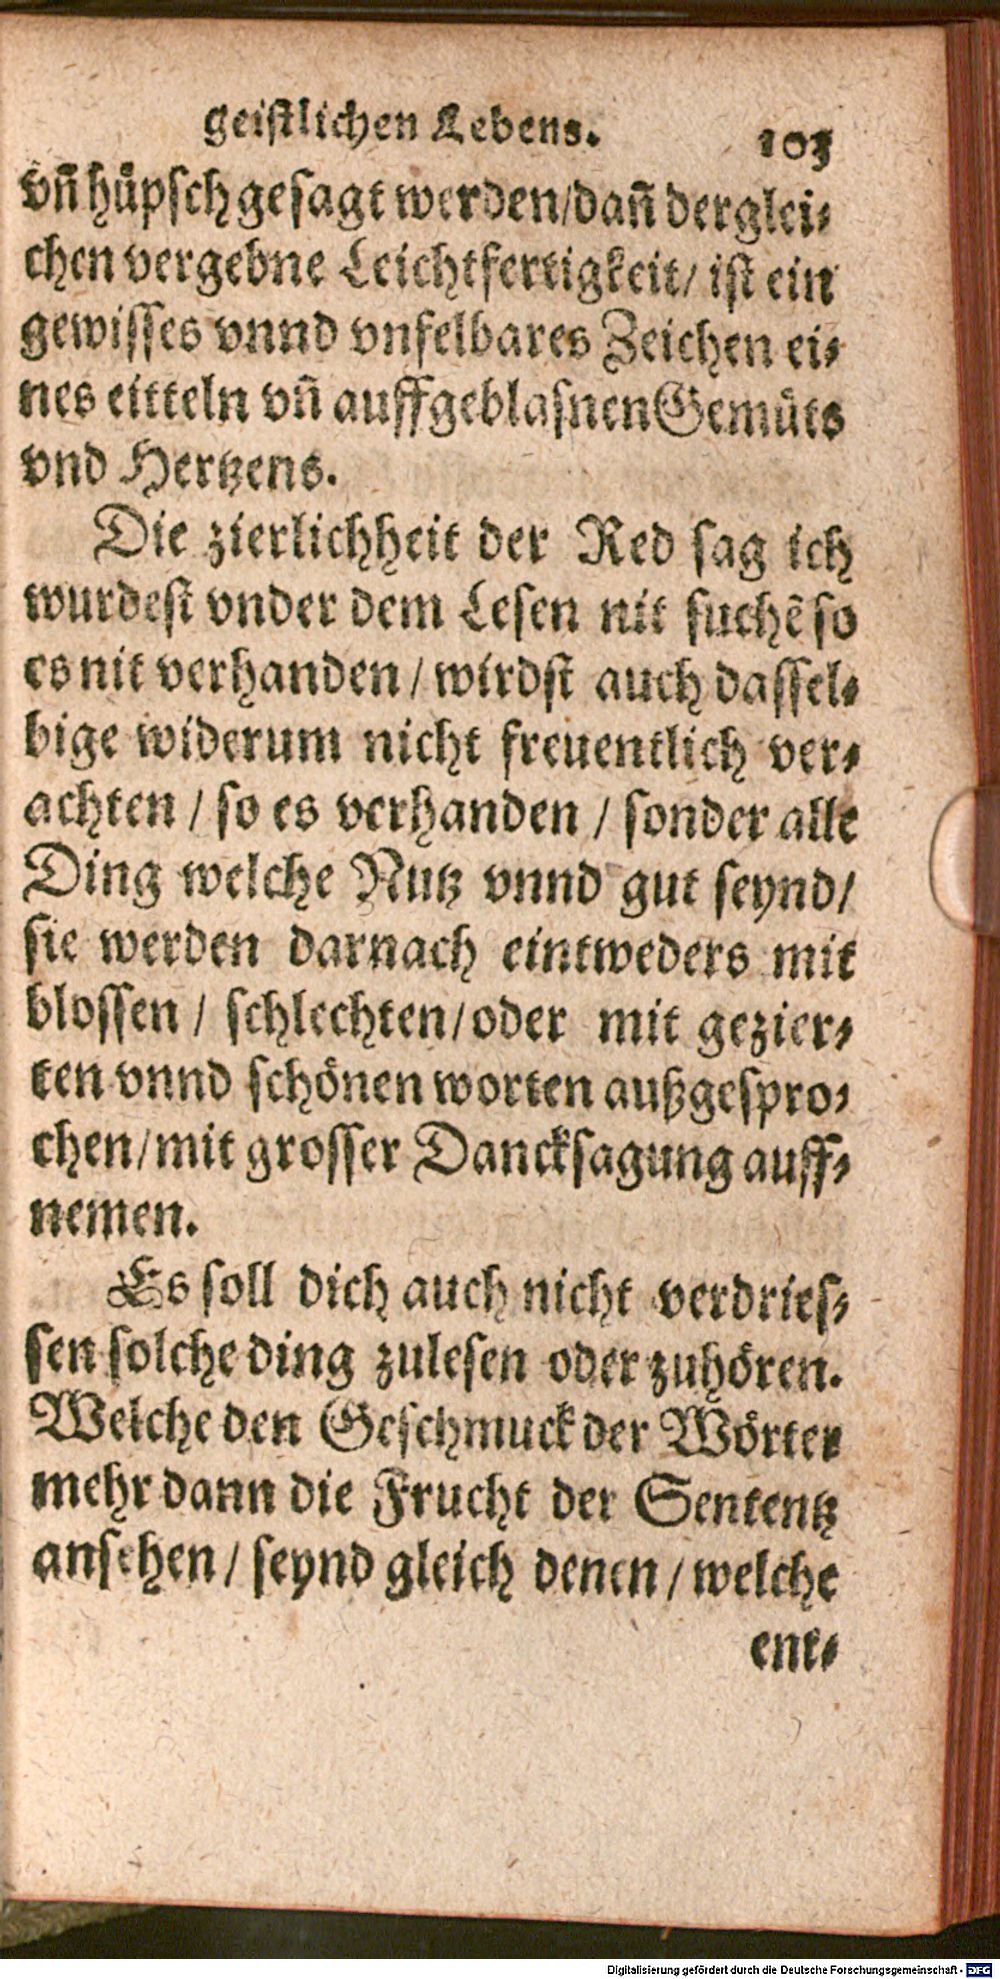 geistlichen Lebens. 103
vñ hüpsch gesagt werden/dañ derglei-
chen vergebne Leichtfertigkeit/ ist ein
gewisses vnnd vnfelbares Zeichen ei-
nes eitteln vñ auffgeblasnen Gemüts
vnd Hertzens.
Die zierlichheit der Red sag ich
wurdest vnder dem Lesen nit suchẽ so
es nit verhanden / wirdst auch dassel-
bige widerum nicht freuentlich ver-
achten / so es verhanden / sonder alle
Ding welche Nutz vnnd gut seynd/
sie werden darnach eintweders mit
blossen / schlechten/oder mit gezier-
ten vnnd schönen worten außgespro-
chen/mit grosser Dancksagung auff-
nemen.
Es soll dich auch nicht verdries-
sen solche ding zulesen oder zuhören.
Welche den Geschmuck der Wörter
mehr dann die Frucht der Sententz
ansehen / seynd gleich denen / welche
ent-
Digitalisierung gefördert durch die Deutsche Forschungsgemeinschaft - DFG